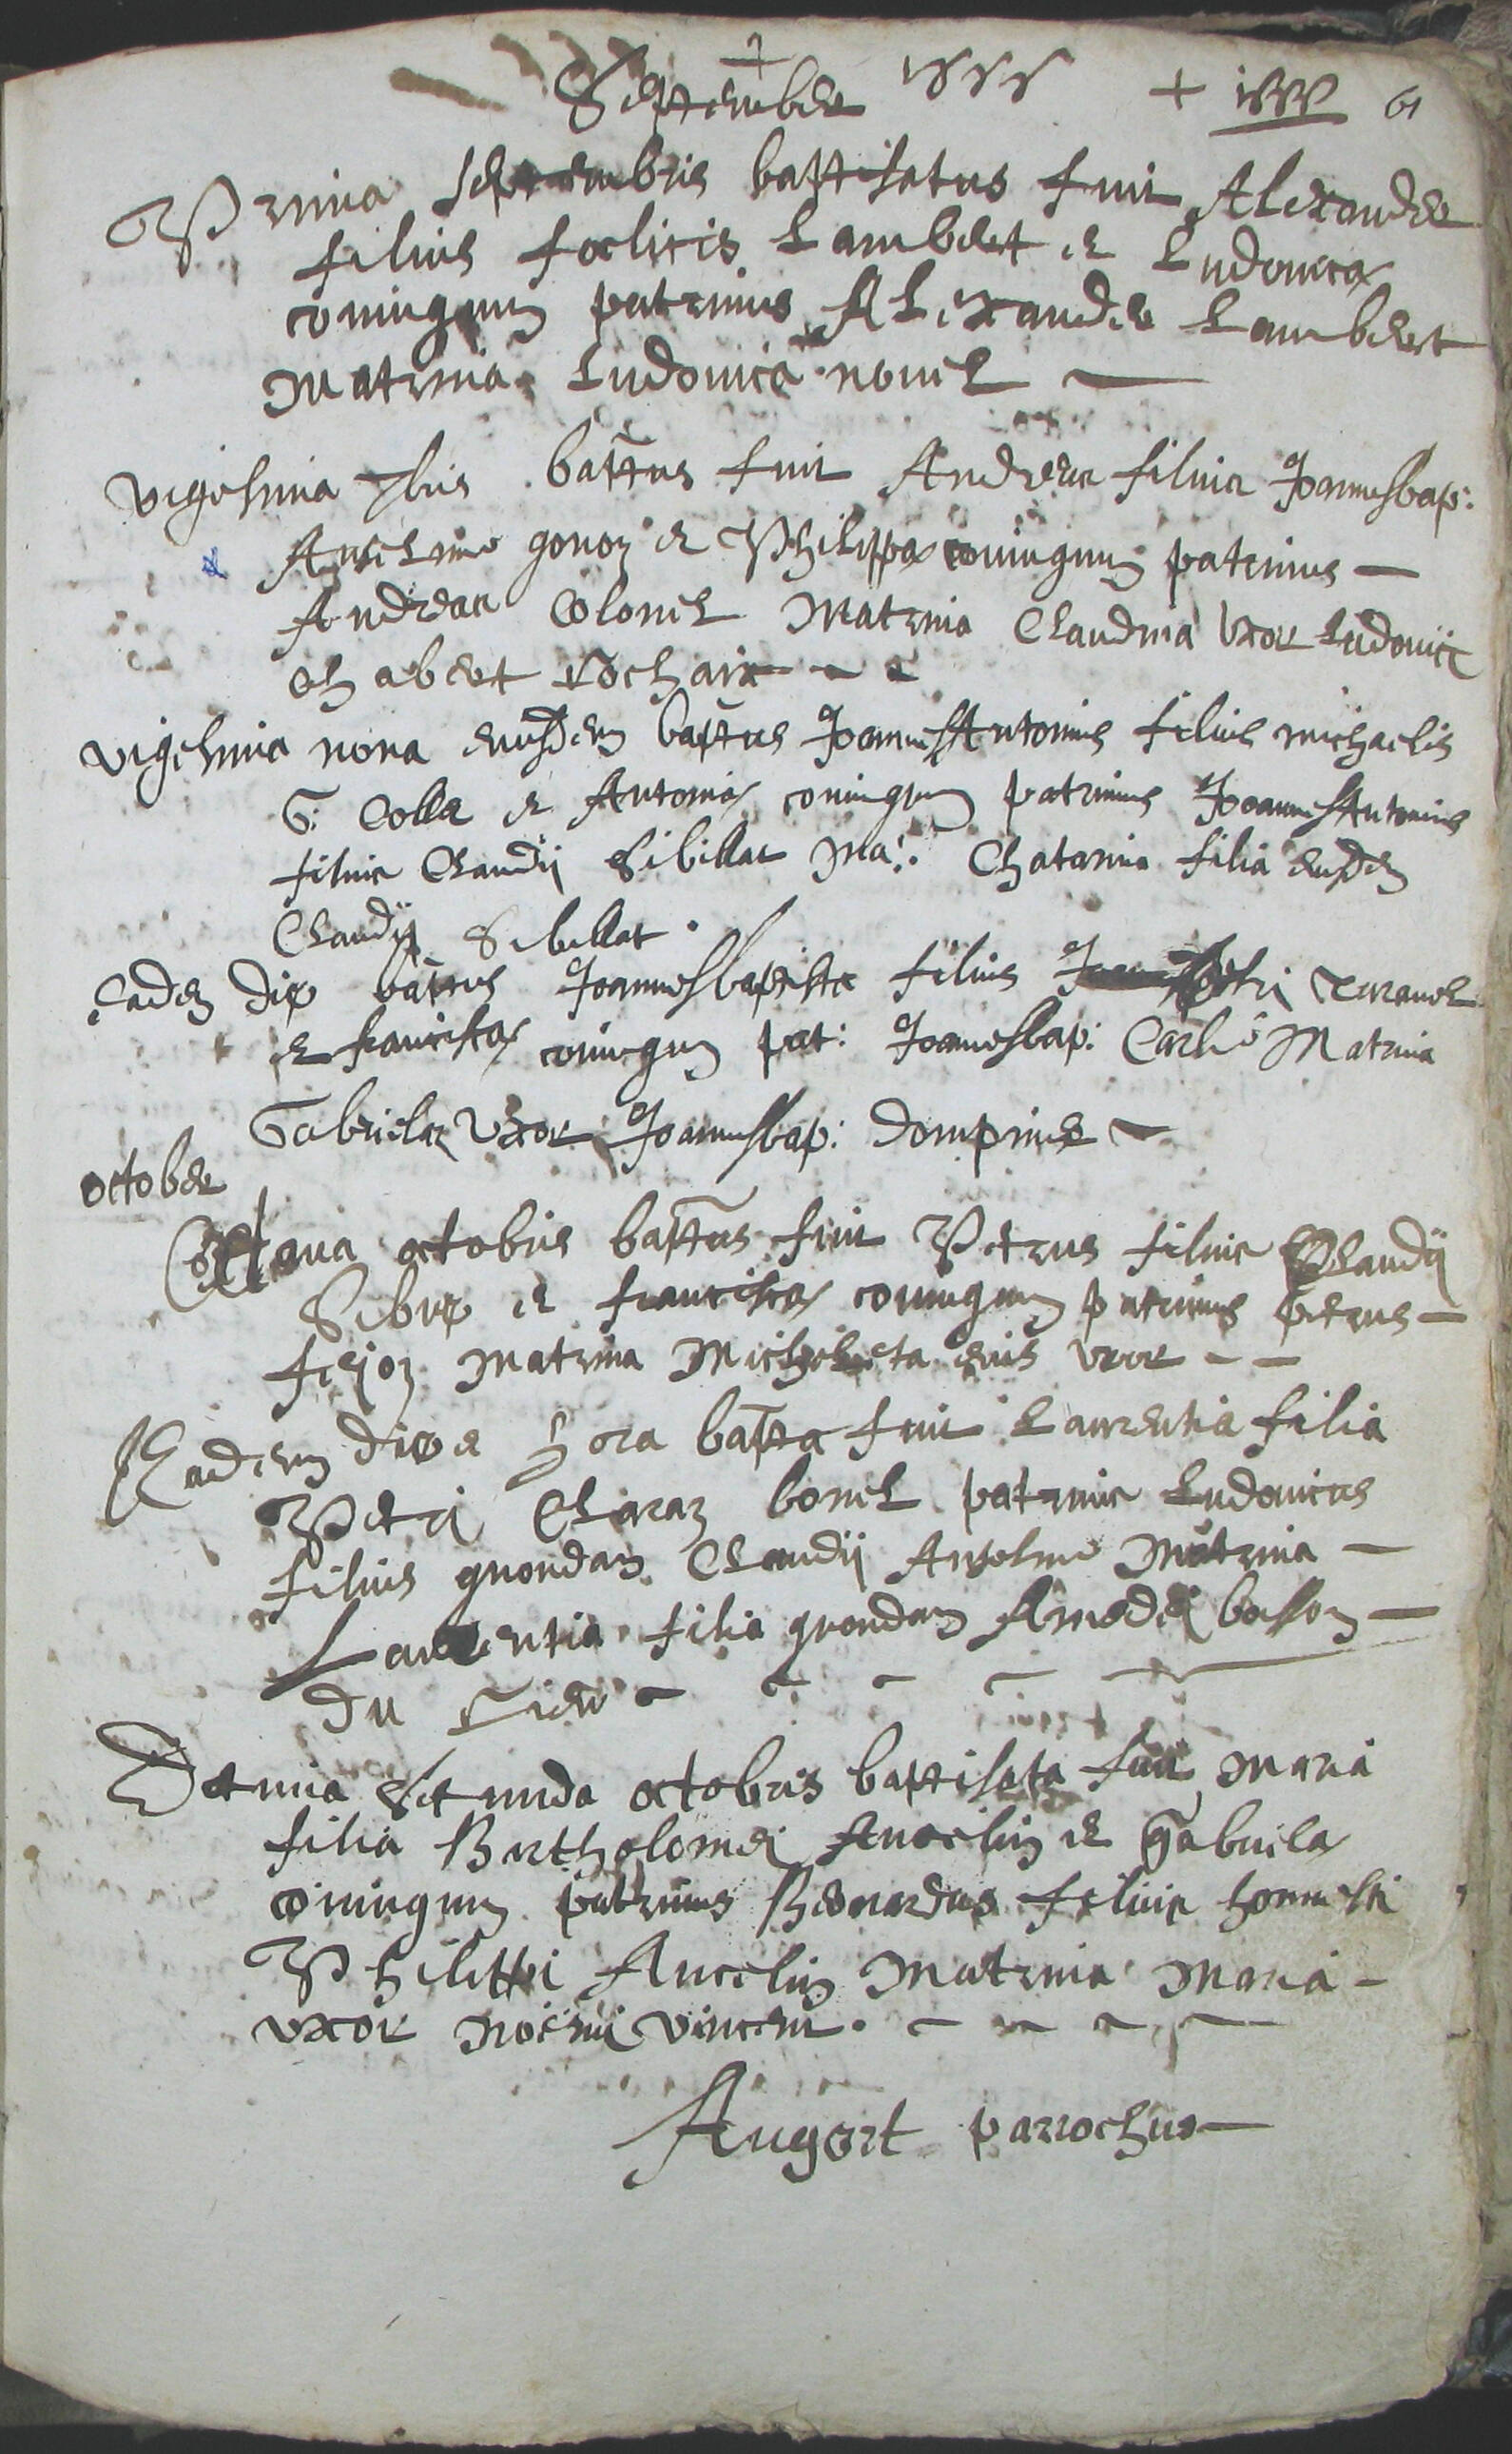 September 1555 + 1555 61
Prima septembris baptisatus fuit Alexander
filius foelicis Lambert et Ludovicæ
coniugum patrinus Alexander Lambert
Matrina Ludovica novel
Vigesima 7bris batt̄us fuit Andreas filius Joannisbap:
Anselmo gonoz et Philippæ coniugum patrinus
Andreas Colonel Matrina Claudina Uxor Ludovici
chabert
Vigesima nona eiusdem bapt̄us JoannesAntonius filius michaelis
G: Colla et Antoniæ coniugum patrinus JoannesAntonius
filius Claudij Sibillat Ma: Chatarina filia eiusdem
Claudij Sibillat.
Eadem die bap̄tus Joannesbaptista filius Petri
et franciscæ coniugum pat: Joannesbap: Matrina
Gabriela Uxor Joannisbap: Dompnie
october
Octava octobris bapt̄us fuit Petrus filius Claudij
et franciscæ coniugum patrinus petrus
Matrina eius uxor
Eadem die et hora bapt̄a fuit Laurentia filia
Petri Claraz bonel patrinus Ludovicus
filius quondam Claudij Anselmo Matrina
Laurentia filia quondam Amedei
du
Decima secunda octobris baptisata fuit Maria
filia Bartholomei Ancelin et Gabrielæ
coniugum patrinus Bernardus filius honnesti
Philippi Ancelin Matrina Maria
uxor Vincent.
Augert parrochus